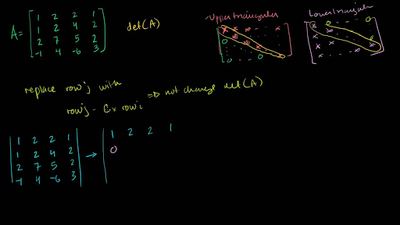 A = [ 1 2 2 1
1 2 4 2
2 7 5 2
-1 4 -6 3 ]
det(A)
Upper triangular
Lower triangular
replace row j with
row j - c x row i
=> not change det(A)
| 1 2 2 1
1 2 4 2
2 7 5 2
-1 4 -6 3 |
→ | 1 2 2 1
0